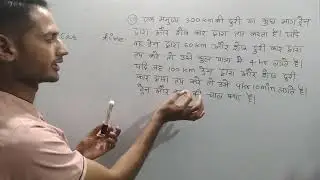 एक मनुष्य 300km की दूरी का कुछ भाग ट्रेन
द्वारा और शेष कार द्वारा तय करता है। यदि
वह ट्रेन द्वारा 60km और शेष दूरी कार द्वारा
तय करे तो उसे कुल यात्रा में 4hr लगते है।
यदि वह 100km ट्रेन द्वारा और शेष दूरी
कार द्वारा तय करे तो उसे 4hr 10min लगते है।
ट्रेन और की चाल क्या है।